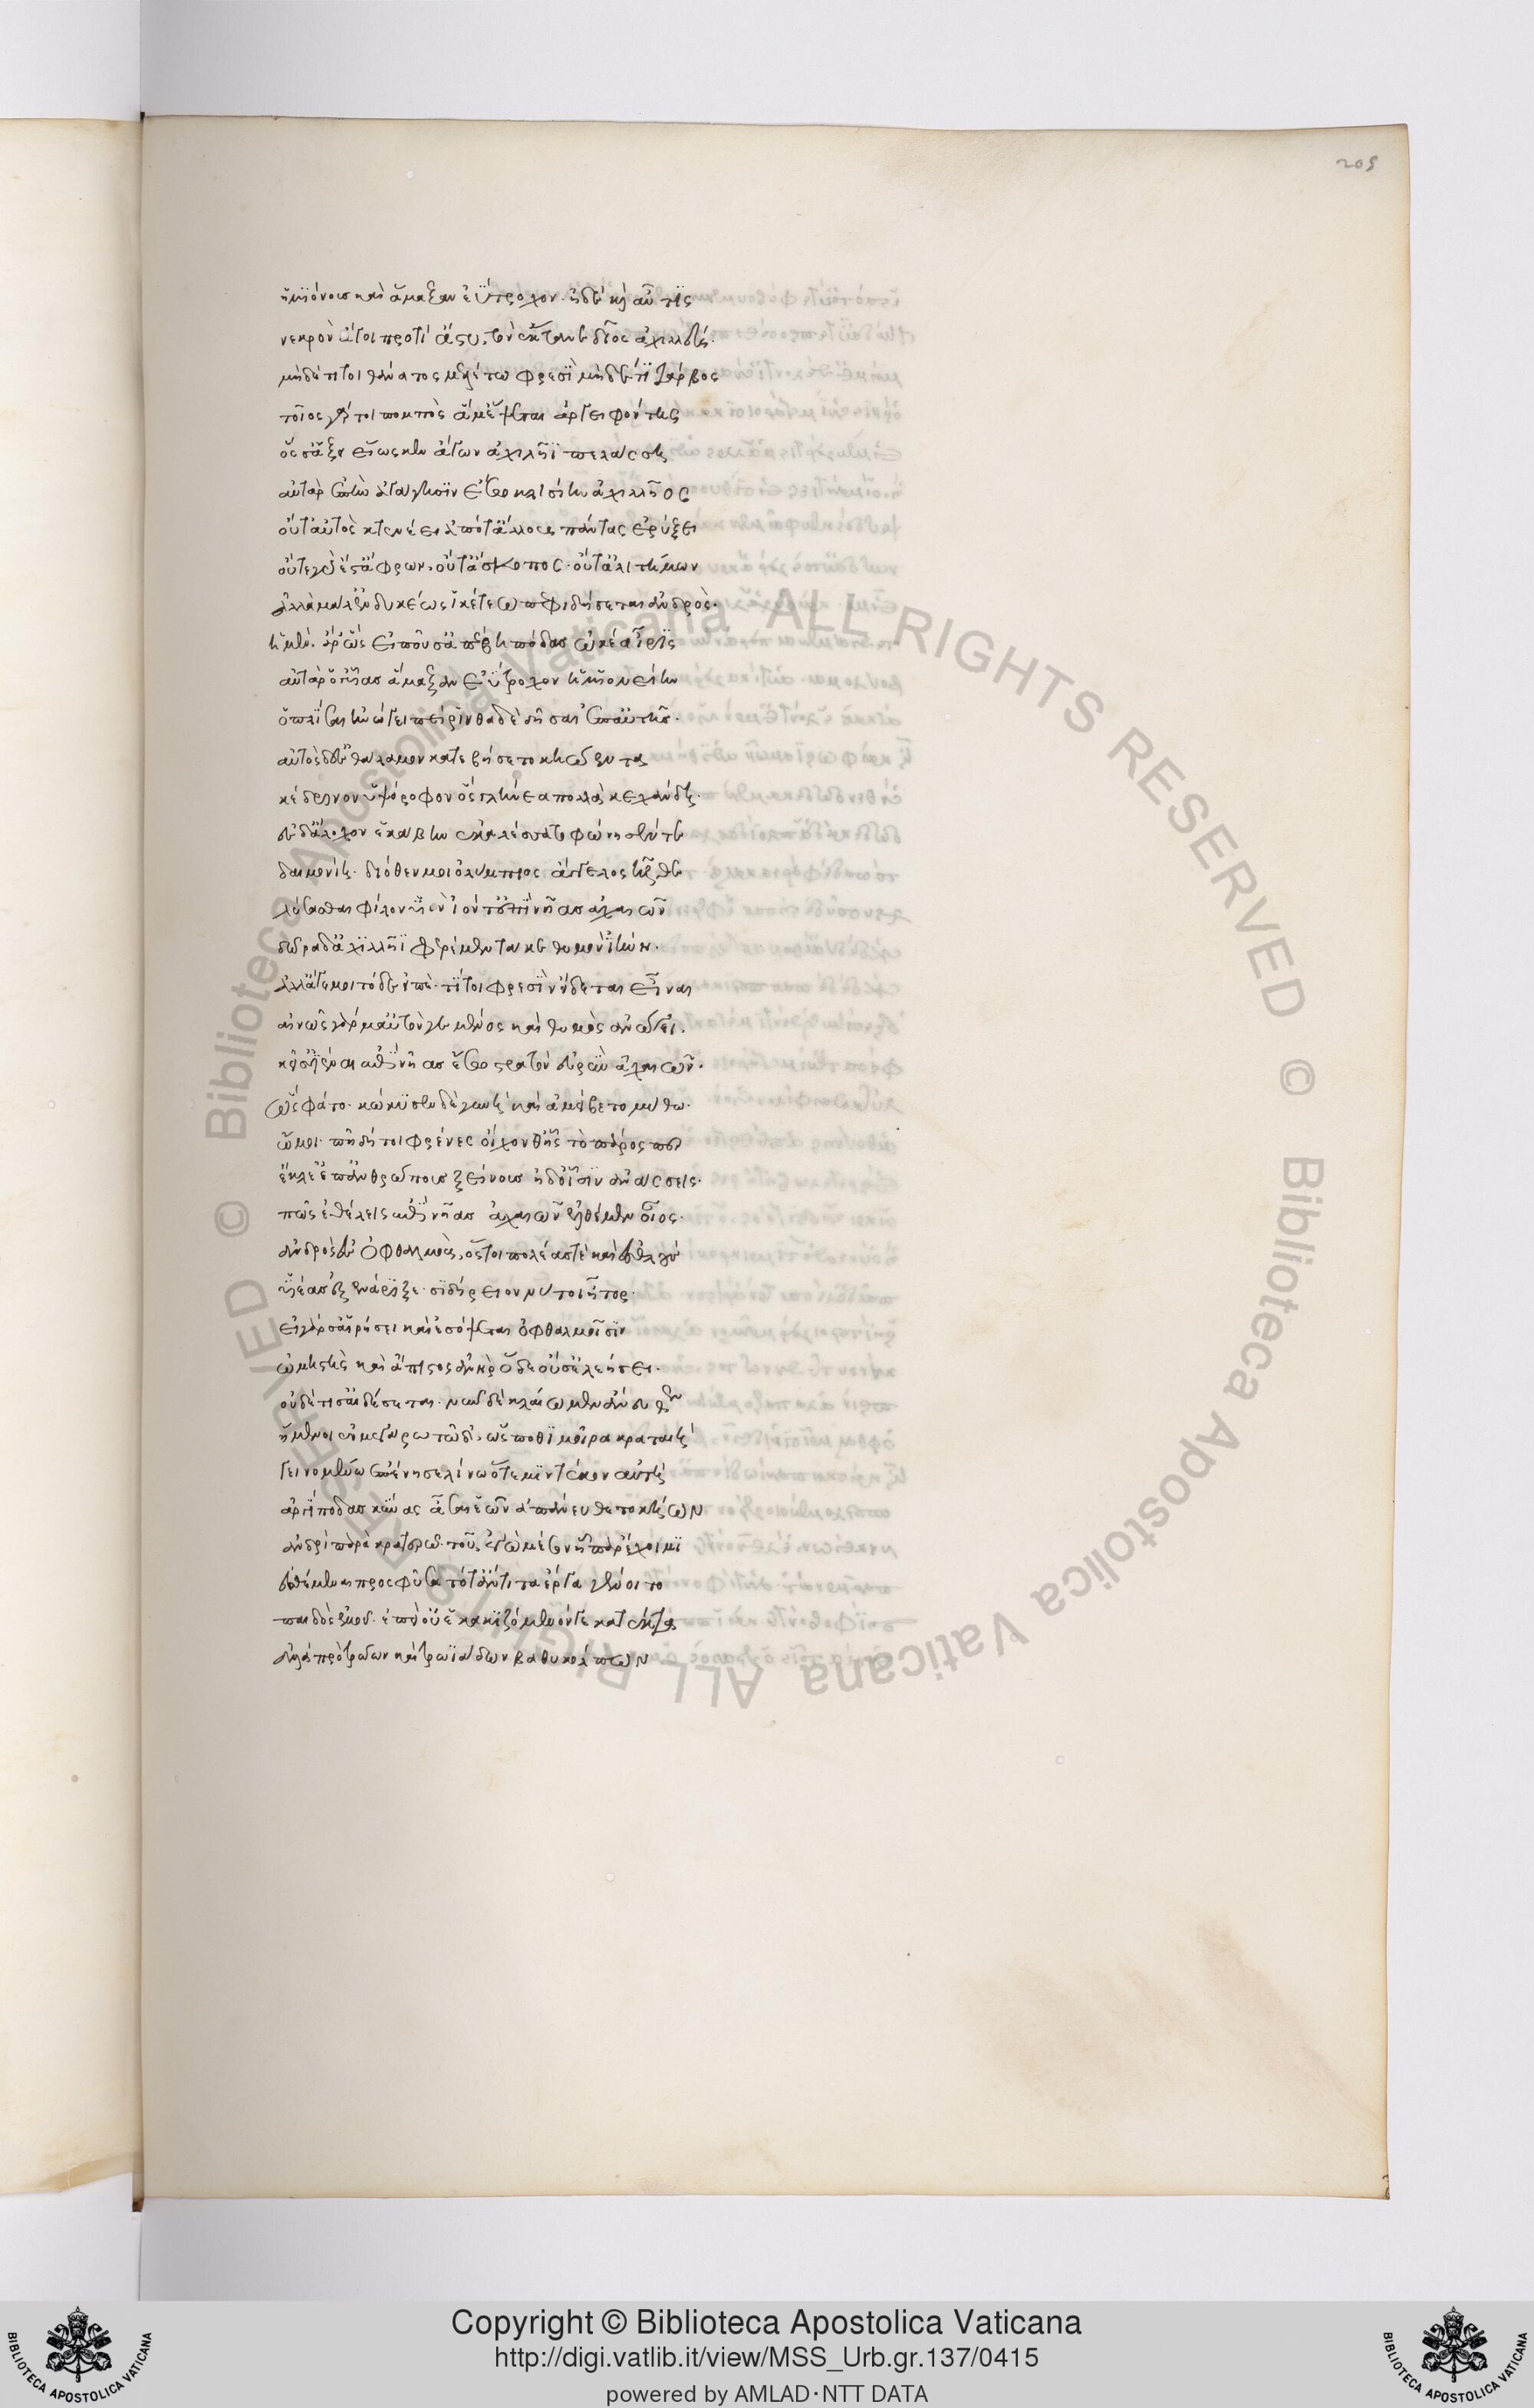 205
ἡμιόνους καὶ ἄμαξαν ἐΰτροχον· ἠδὲ καὶ αὖτις
νεκρὸν ἄγοι προτὶ ἄστυ, τὸν ἔκτανε δῖος ἀχιλλεύς·
μηδέ τί τοι θάνατος μελέτω φρεσὶ μηδέ τι τάρβος
τοῖος γάρ τοι πομπὸς ἅμ' ἕψεται ἀργειφόντης
ὅς σ' ἄξει εἵως κεν ἄγων ἀχιλῆϊ πελάσση
αὐτὰρ ἐπὴν ἀγάγησιν ἔσω κλισίην ἀχιλλῆος
οὔτ' αὐτὸς κτενέει ἀπό τ' ἄλλους πάντας ἐρύξει
οὔτε γάρ ἐστ' ἄφρων, οὔτ' ἄσκοπος· οὔτ' ἀλιτήμων
ἀλλὰ μάλ' ἐνδυκέως ἱκέτεω πεφιδήσεται ἀνδρός·
ἡ μὲν ἄρ' ὣς εἰποῦσ' ἀπέβη πόδας ὠκέα ἶρις
αὐτὰρ ὅ γ' υἷας ἄμαξαν ἐΰτροχον ἡμιονείην
ὁπλίσαι ἠνώγει πείρινθα δὲ δῆσαι ἐπ' αὐτῆς·
αὐτὸς δ' ἐς θάλαμον κατεβήσετο κηώεντα
κέδρινον ὑψόροφον ὃς γλήνεα πολλὰ κεχάνδει·
ἐς δ' ἄλοχον ἑκάβην ἐκαλέσσατο φώνησέν τε
δαιμονίη· διόθεν μοι ὀλύμπιος ἄγγελος ἦλθε
λύσασθαι φίλον υἱὸν ἰόντ' ἐπὶ νῆας ἀχαιῶν
δῶρα δ' ἀχιλλῆϊ φερέμεν τά κε θυμὸν ἰήνη·
ἀλλ' ἄγε μοι τόδε εἰπέ· τί τοι φρεσὶν εἴδεται εἶναι
αἰνῶς γάρ μ' αὐτόν γε μένος καὶ θυμὸς ἀνώγει·
κεῖσ' ἰέναι ἐπὶ νῆας ἔσω στρατὸν εὐρὺν ἀχαιῶν·
ὣς φάτο· κώκυσεν δὲ γυνὴ καὶ ἀμείβετο μύθω·
ὤμοι· πῇ δή τοι φρένες οἴχονθ' ἧς τὸ πάρος περ
ἔκλε' ἐπ' ἀνθρώπους ξείνους ἠδ' οἷσιν ἀνάσσεις·
πῶς ἐθέλεις ἐπὶ νῆας ἀχαιῶν ἐλθέμεν οἶος·
ἀνδρὸς ἐς ὀφθαλμοὺς, ὅς τοι πολέας τε καὶ ἐσθλοὺς
υἱέας ἐξενάριξε· σιδήρειόν νύ τοι ἦτορ·
εἰ γάρ σ' αἱρήσει καὶ ἐσόψεται ὀφθαλμοῖσιν
ὠμηστὴς καὶ ἄπιστος ἀνὴρ ὅδε οὔ σ' ἐλεήσει·
οὐδέ τί σ' αἰδέσεται· νῦν δὲ κλαίωμεν ἄνευθεν
ἥμενοι ἐν μεγάρω τῷ δ', ὥς ποθι μοῖρα κραταιὴ
γεινομένω ἐπένησε λίνω ὅτε μιν τέκον αὐτή
ἀργίποδας κύνας ἆσαι ἑῶν ἀπάνευθε τοκήων
ἀνδρὶ πάρα κρατερῷ· τοῦ ἐγὼ μέσον ἧπαρ ἔχοιμι
ἐσθέμεναι προσφῦσα τότ' ἄντιτα ἔργα γένοιτο
παιδὸς ἐμοῦ· ἐπεὶ οὔ ἑ κακιζόμενόν γε κατέκτα
ἀλλὰ πρὸ τρώων καὶ τρωϊάδων βαθυκόλπων
Copyright © Biblioteca Apostolica Vaticana
http://digi.vatlib.it/view/MSS_Urb.gr.137/0415
powered by AMLAD·NTT DATA